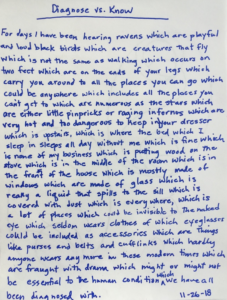 Diagnose vs. Know
For days I have been hearing ravens which are playful
and loud black birds which are creatures that fly
which is not the same as walking which occurs on
two feet which are on the ends of your legs which
carry you around to all the places you can go which
could be anywhere which includes all the places you
can't get to which are numerous as the stars which
are either little pinpricks or raging infernos which are
very hot and too dangerous to keep in your dresser
which is upstairs, which is where the bed which I
sleep in sleeps all day without me which is fine which
is none of my business which is putting wood in the
stove which is in the middle of the room which is in
the front of the house which is mostly made of
windows which are made of glass which is
really a liquid that spills to the sill which is
covered with dust which is everywhere, which is
a lot of places which could be invisible to the naked
eye which seldom wears clothes of which eyeglasses
could be included as accessories which are things
like purses and belts and cufflinks which hardly
anyone wears any more in these modern times which
are fraught with drama which might or might not
be essential to the human condition which we have all
been diagnosed with.
11-26-18